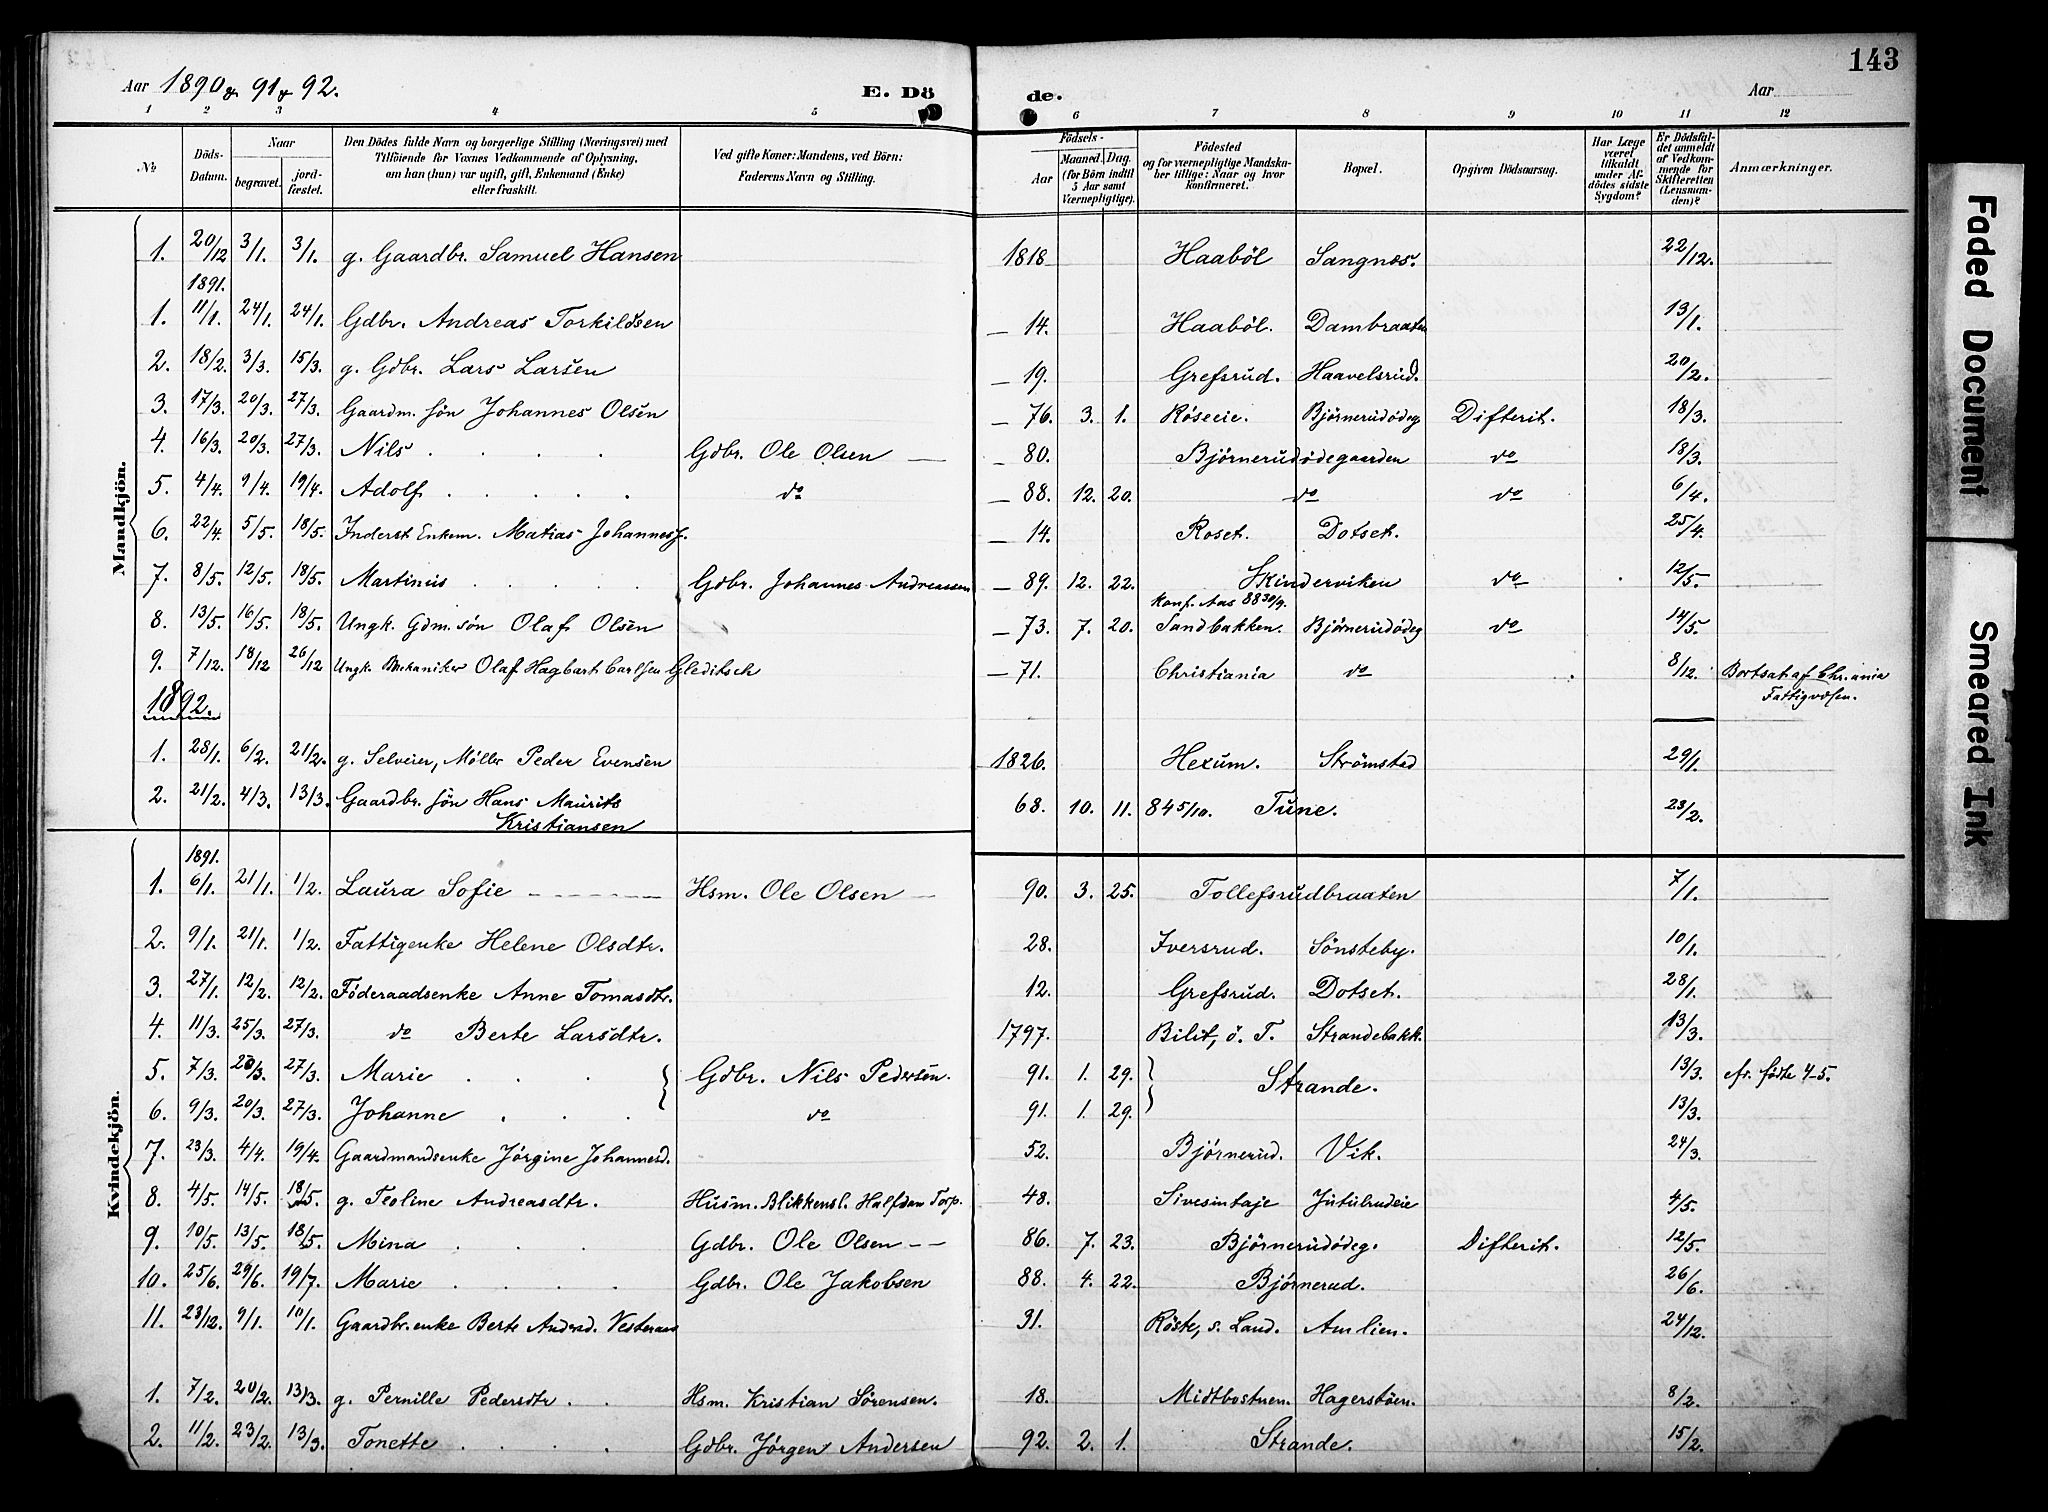 143
Aar 1890 & 91 & 92. E. Dö de. Aar
1 2 3 4 5 6 7 8 9 10 11 12
No
Döds-Datum.
Naar
begravet.
jordfæstet.
Den Dödes fulde Navn og borgerlige Stilling (Næringsvei) med Tilföiende for Voxnes Vedkommende af Oplysning, om han (hun) var ugift, gift, Enkemand (Enke) eller fraskilt.
Ved gifte Koner: Mandens, ved Börn: Faderens Navn og Stilling.
Födsels-
Aar
Maaned. Dag.
(for Börn indtil 5 Aar samt Værnepligtige).
Födested og for værnepligtige Mandskaber tillige: Naar og hvor konfirmeret.
Bopæl.
Opgiven Dödsaarsag.
Har Læge været tilkaldt under Afdödes sidste Sygdom?
Er Dödsfaldet anmeldt af Vedkommende for Skifteretten (Lensmanden)?
Anmærkninger.
Mandkjön.
1. 20/12 3/1. 3/1. g. Gaardbr. Samuel Hansen 1818 Haaböl Sangnæs. 22/12.
1891.
1. 11/1. 24/1. 24/1. Gdbr. Andreas Torkildsen — 14. Haaböl. Dambraaten 13/1.
2. 18/2. 3/3. 15/3. g. Gdbr. Lars Larsen — 19. Grefsrud. Haavelsrud. 20/2.
3. 17/3. 20/3. 27/3. Gaardm. sön Johannes Olsen — 76. 3. 1. Röseeie. Björnerudödeg Difterit. 18/3.
4. 16/3. 20/3. 27/3. Nils . . . . Gdbr. Ole Olsen — — 80. Björnerudödegaarden do 18/3.
5. 4/4. 9/4. 19/4. Adolf . . . . do — 88. 12. 20. do do 6/4.
6. 22/4. 5/5. 18/5. Inderst Enkem. Matias Johannesf. — 14. Roset. Dotset. 25/4.
7. 8/5. 12/5. 18/5. Martinus . . . . Gdbr. Johannes Andreassen — 89. 12. 22. Skinderviken do 12/5.
Konf. Aas 88 30/9.
8. 13/5. 16/5. 18/5. Ungk. Gdm. sön Olaf Olsen — 73. 7. 20. Sandbakken. Björnerudödeg do 14/5.
9. 7/12. 18/12 26/12 Ungk. Mekaniker Olaf Hagbart Carlsen Gleditsch — 71. Christiania do 8/12. Bortsat af Chr.ania
Fattigvæsen.
1892.
1. 28/1. 6/2. 21/2. g. Selveier, Möller Peder Evensen 1826. Hexum. Strömstad 29/1.
2. 21/2. 4/3. 13/3. Gaardbr. sön Hans Maurits 68. 10. 11. 84 5/10. Tune. 23/2.
Kristiansen
Kvindekjön.
1891.
1. 6/1. 21/1. 1/2. Laura Sofie — — — — Hsm. Ole Olsen — 90. 3. 25. Tollefsrudbraaten 7/1.
2. 9/1. 21/1. 1/2. Fattigenke Helene Olsdtr. 28. Iversrud. Sönsteby. 10/1.
3. 27/1. 12/2. 12/2. Föderaadsenke Anne Tomasdtr. 12. Grefsrud. Dotset. 28/1.
4. 11/3. 25/3. 27/3. do Berte Larsdtr. 1797. Bilit, ö. T. Strandebakk. 13/3.
5. 7/3. 20/3. 27/3. Marie . . . Gdbr. Nils Pedersen. 91. 1. 29. Strande. 13/3. cfr. födte 4-5.
6. 9/3. 20/3. 27/3. Johanne . . . do 91. 1. 29. 13/3.
7. 23/3. 4/4. 19/4. Gaardmandsenke Jörgine Johannesd. 52. Björnerud. Vik. 24/3.
8. 4/5. 14/5. 18/5. g. Teoline Andreasdtr. Husm. Blikkensl. Halfdan Torp. 48. Sivesintaje Jutulrudeie 4/5.
9. 10/5. 13/5. 18/5. Mina . . . Gdbr. Ole Olsen — — 86. 7. 23. Björnerudödeg. Difterit. 12/5.
10. 25/6. 29/6. 19/7. Marie . . . . Gdbr. Ole Jakobsen 88. 4. 22. Björnerud. 26/6.
11. 23/12. 9/1. 10/1. Gaardbr.enke Berte Andersd. Vesteraas 31. Röste, s. Land. Amlien. 24/12.
1. 7/2. 20/2. 13/3. g. Pernille Pedersdtr . . Hsm. Kristian Sörensen. 18. Midtbostuen. Hagerstöen. 8/2.
2. 11/2. 23/2. 13/3. Tonette . . . . Gdbr. Jörgen Andersen 92. 2. 1. Strande. 15/2.
Faded Document
Smeared Ink